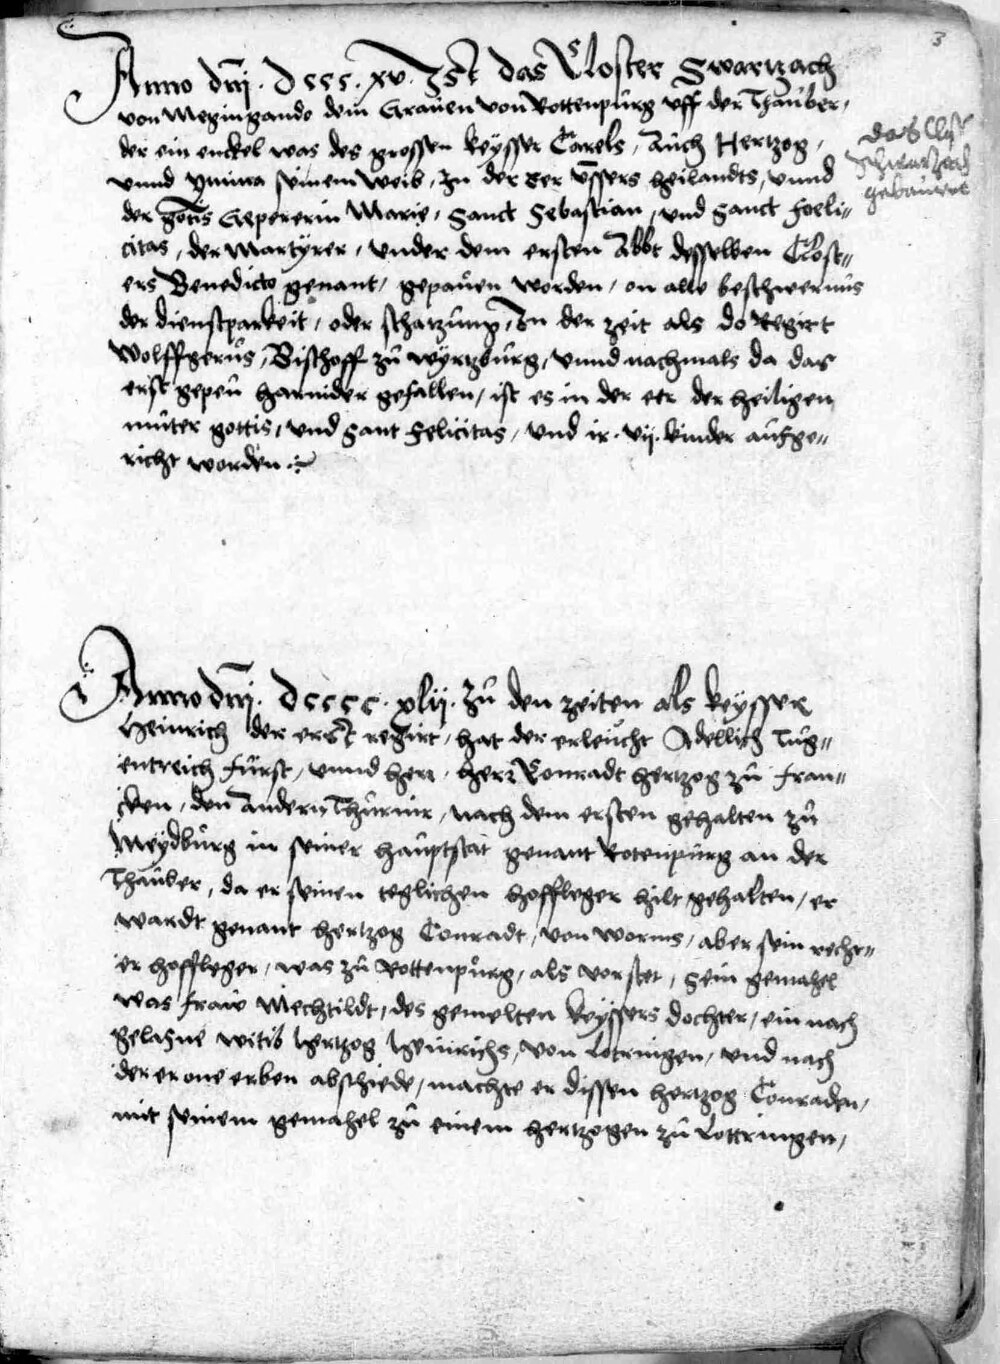 3
Anno dm̄j . dccc . xv . Ist das Closter Swartzach
von Megingando dem Graven von Rottenpurg vff der Thauber,
der ein enckel was des grossen keysser Carels, Auch Hertzog,
vnnd ymma seinem weib, In der Eer vn̄sers heilandts, vnnd
der gottis Gepererin Marie, Sanct Sebastian, vnd Sanct Foeli„
citas, der Martyrer, vnder dem ersten Abbt desselben Clost„
ers Benedicto genant, gepauen worden, on alle beschwernus
der dienstparkeit, oder schatzung, In der zeit als do Regirt
Wolffgerus, Bischoff zu wyrtzburg, vnnd nachmals da das
erst gepeu harnider gefallen, ist es in der eer der heiligen
muter gottis, vnd Sant Felicitas, vnd ir . vij . kinder aufge„
richt worden
das Clost
Schwarzach
gebauwet
Anno dm̄j . dcccc . xlij . Zu den zeiten als keysser
Heinrich der erst regirt, hat der erleucht Adellich Tug„
entreich Furst, vnnd herr, herr Conradt hertzog zu Fran„
cken, den Andern Thurnir, nach dem ersten gehalten zu
Meydburg in seiner hauptstat genant Rotenpurg an der
Thauber, da er seinen teglichen hoffleger hilt gehalten, er
wardt genant hertzog Conradt, von worms, aber sein recht„
er hoffleger, was zu Rottenpurg, als vorstet, Sein gemahel
was fraw Mechtildt, des gemelten keyssers dochter, ein nach
gelasne witib hertzog heinrichs, von Lotringen, vnd nach
der er one erben abschiede, machte er dissen hertzog Conraden,
mit seinem gemahel zu einem hertzogen zu Lottringen,